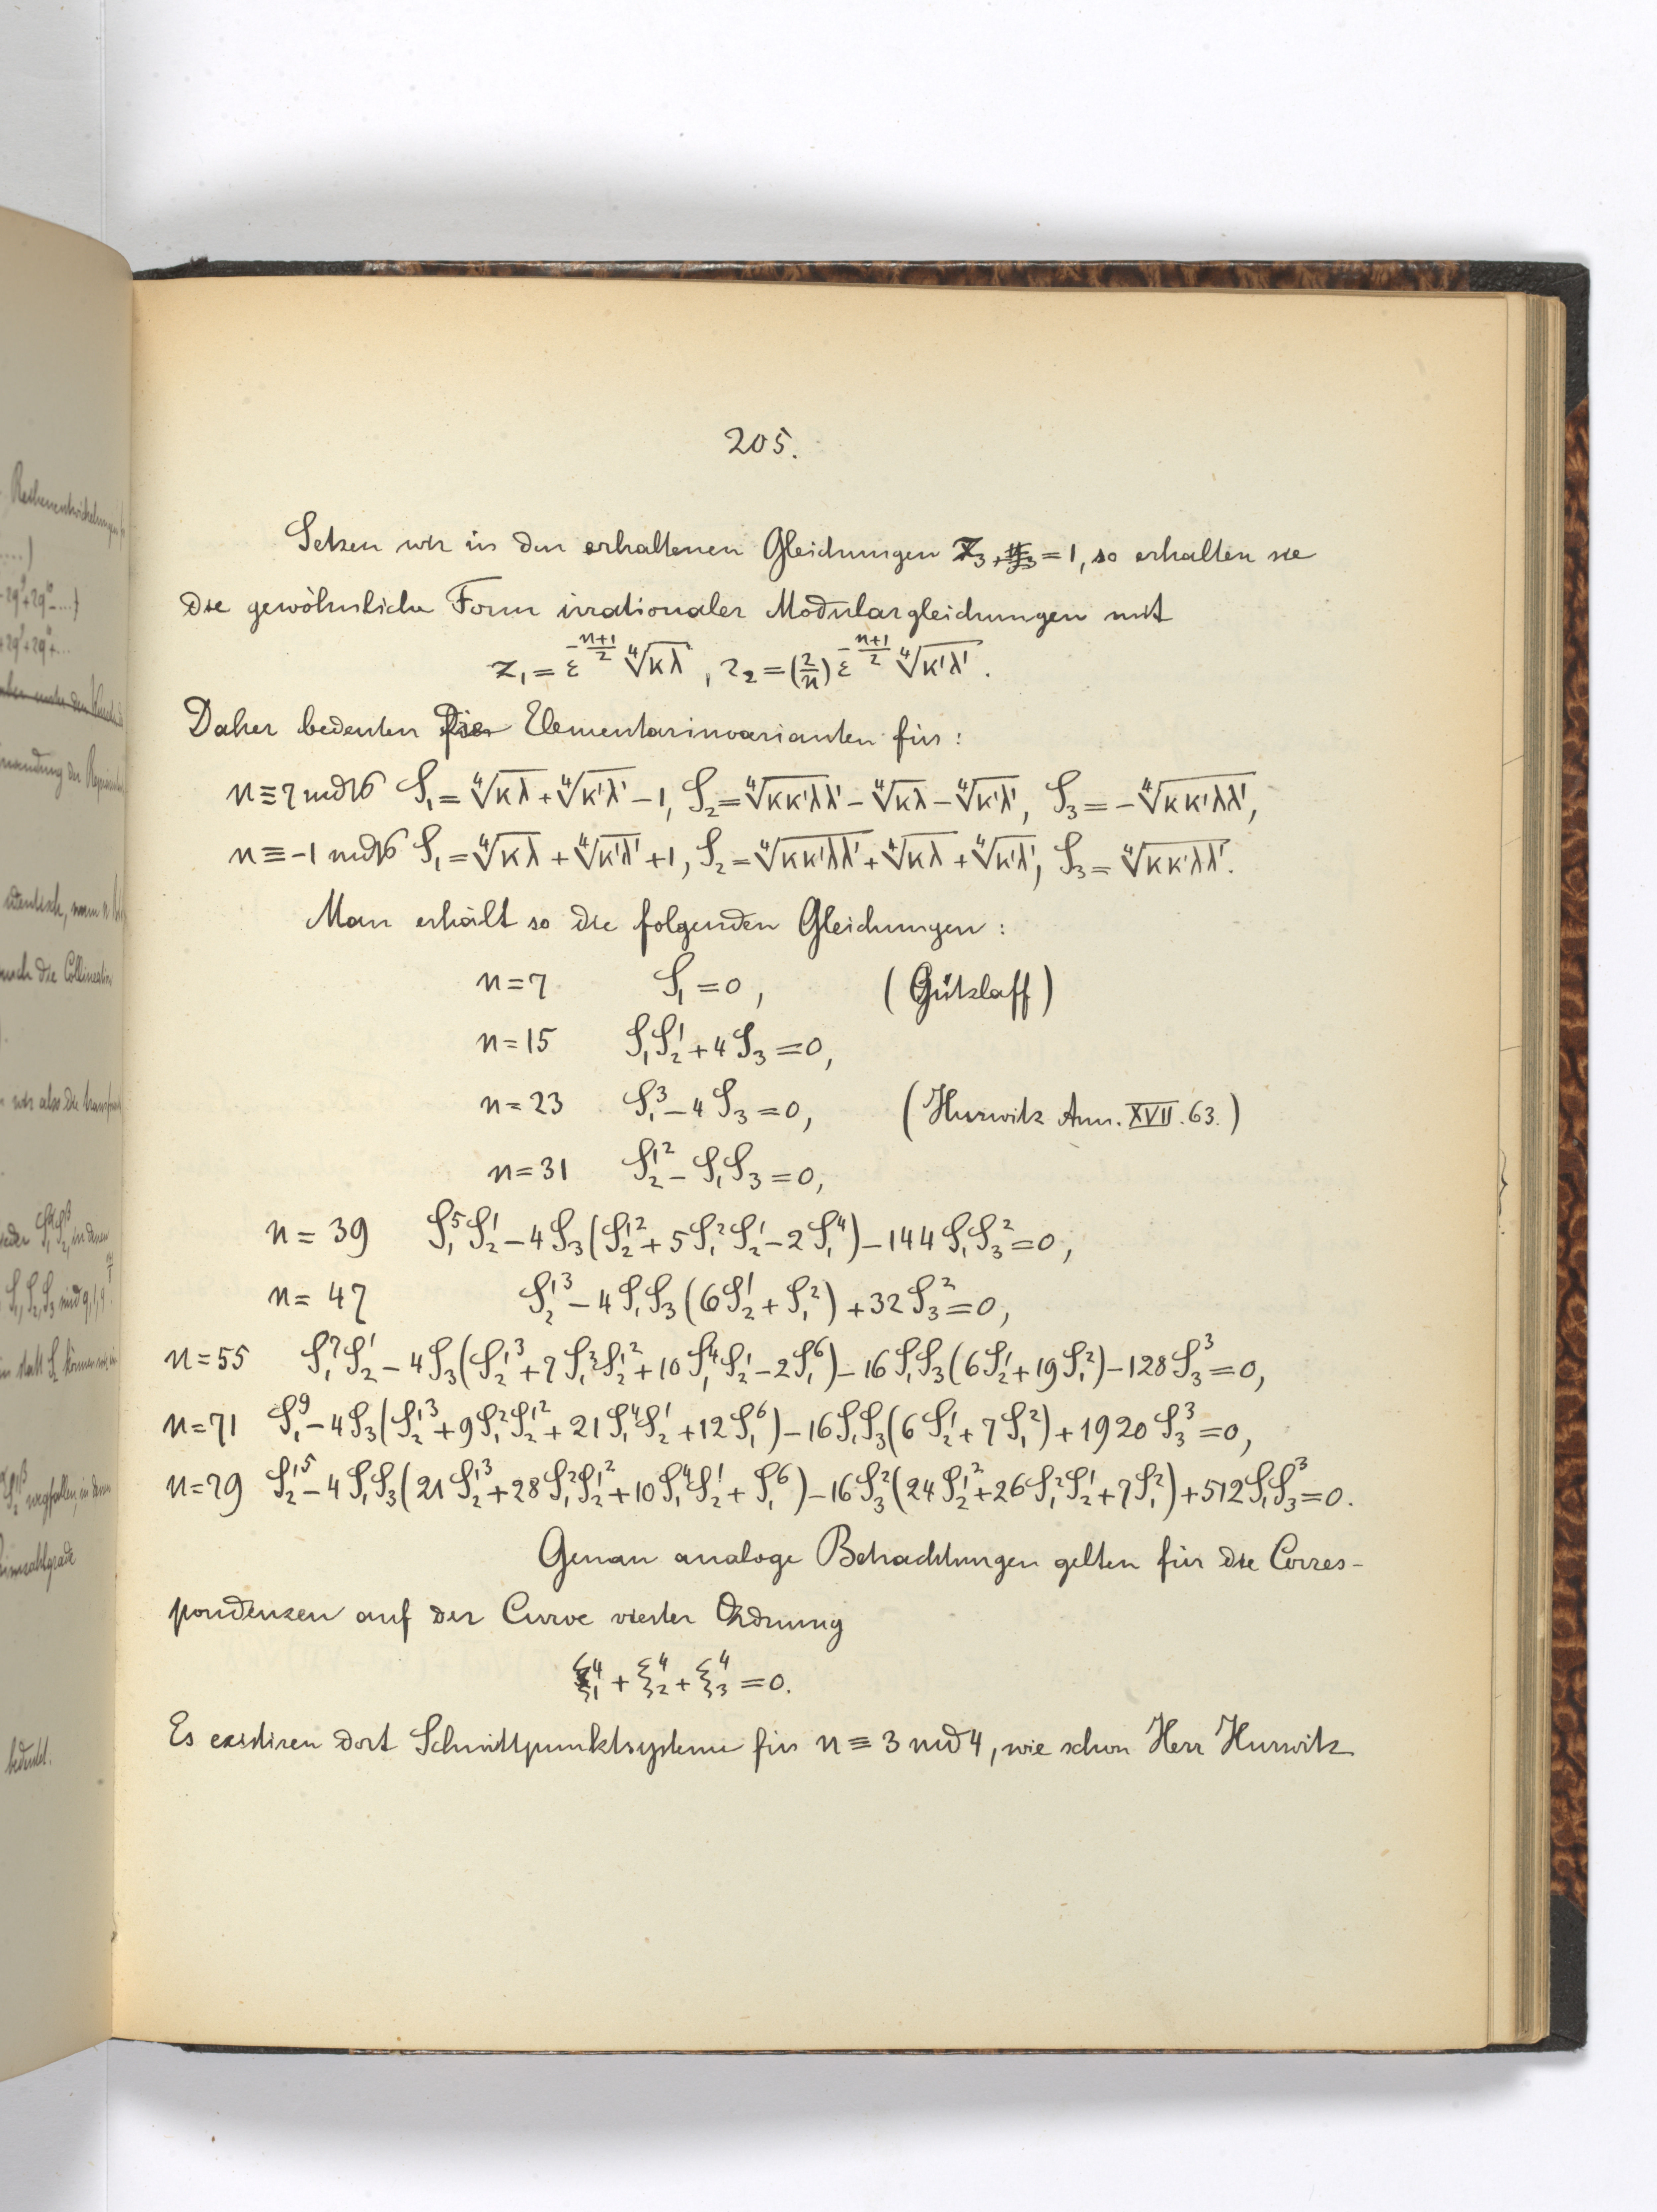 205.
Setzen wir in den erhaltenen Gleichungen z₃ = 1, so erhalten sie
die gewöhnliche Form irrationaler Modulargleichungen mit
z₁ = ε^(-(n+1)/2) ∜(κλ), z₂ = (2/n) ε^(-(n+1)/2) ∜(κ'λ').
Daher bedeuten die Elementarinvarianten für:
n ≡ 7 mod 16 S₁ = ∜(κλ) + ∜(κ'λ') − 1, S₂ = ∜(κκ'λλ') − ∜(κλ) − ∜(κ'λ'), S₃ = − ∜(κκ'λλ'),
n ≡ −1 mod 16 S₁ = ∜(κλ) + ∜(κ'λ') + 1, S₂ = ∜(κκ'λλ') + ∜(κλ) + ∜(κ'λ'), S₃ = ∜(κκ'λλ').
Man erhält so die folgenden Gleichungen:
n = 7 S₁ = 0, (Gützlaff)
n = 15 S₁S₂' + 4S₃ = 0,
n = 23 S₁³ − 4S₃ = 0, (Hurwitz Ann. XVII. 63.)
n = 31 S₂'² − S₁S₃ = 0,
n = 39 S₁⁵S₂' − 4S₃(S₂'² + 5S₁²S₂' − 2S₁⁴) − 144S₁S₃² = 0,
n = 47 S₂'³ − 4S₁S₃(6S₂' + S₁²) + 32S₃² = 0,
n = 55 S₁⁷S₂' − 4S₃(S₂'³ + 7S₁²S₂'² + 10S₁⁴S₂' − 2S₁⁶) − 16S₁S₃(6S₂' + 19S₁²) − 128S₃³ = 0,
n = 71 S₁⁹ − 4S₃(S₂'³ + 9S₁²S₂'² + 21S₁⁴S₂' + 12S₁⁶) − 16S₁S₃(6S₂' + 7S₁²) + 1920S₃³ = 0,
n = 79 S₂'⁵ − 4S₁S₃(21S₂'³ + 28S₁²S₂'² + 10S₁⁴S₂' + S₁⁶) − 16S₃²(24S₂'² + 26S₁²S₂' + 7S₁²) + 512S₁S₃³ = 0.
Genau analoge Betrachtungen gelten für die Corres-
pondenzen auf der Curve vierter Ordnung
ξ₁⁴ + ξ₂⁴ + ξ₃⁴ = 0.
Es existiren dort Schnittpunktsysteme für n ≡ 3 mod 4, wie schon Herr Hurwitz